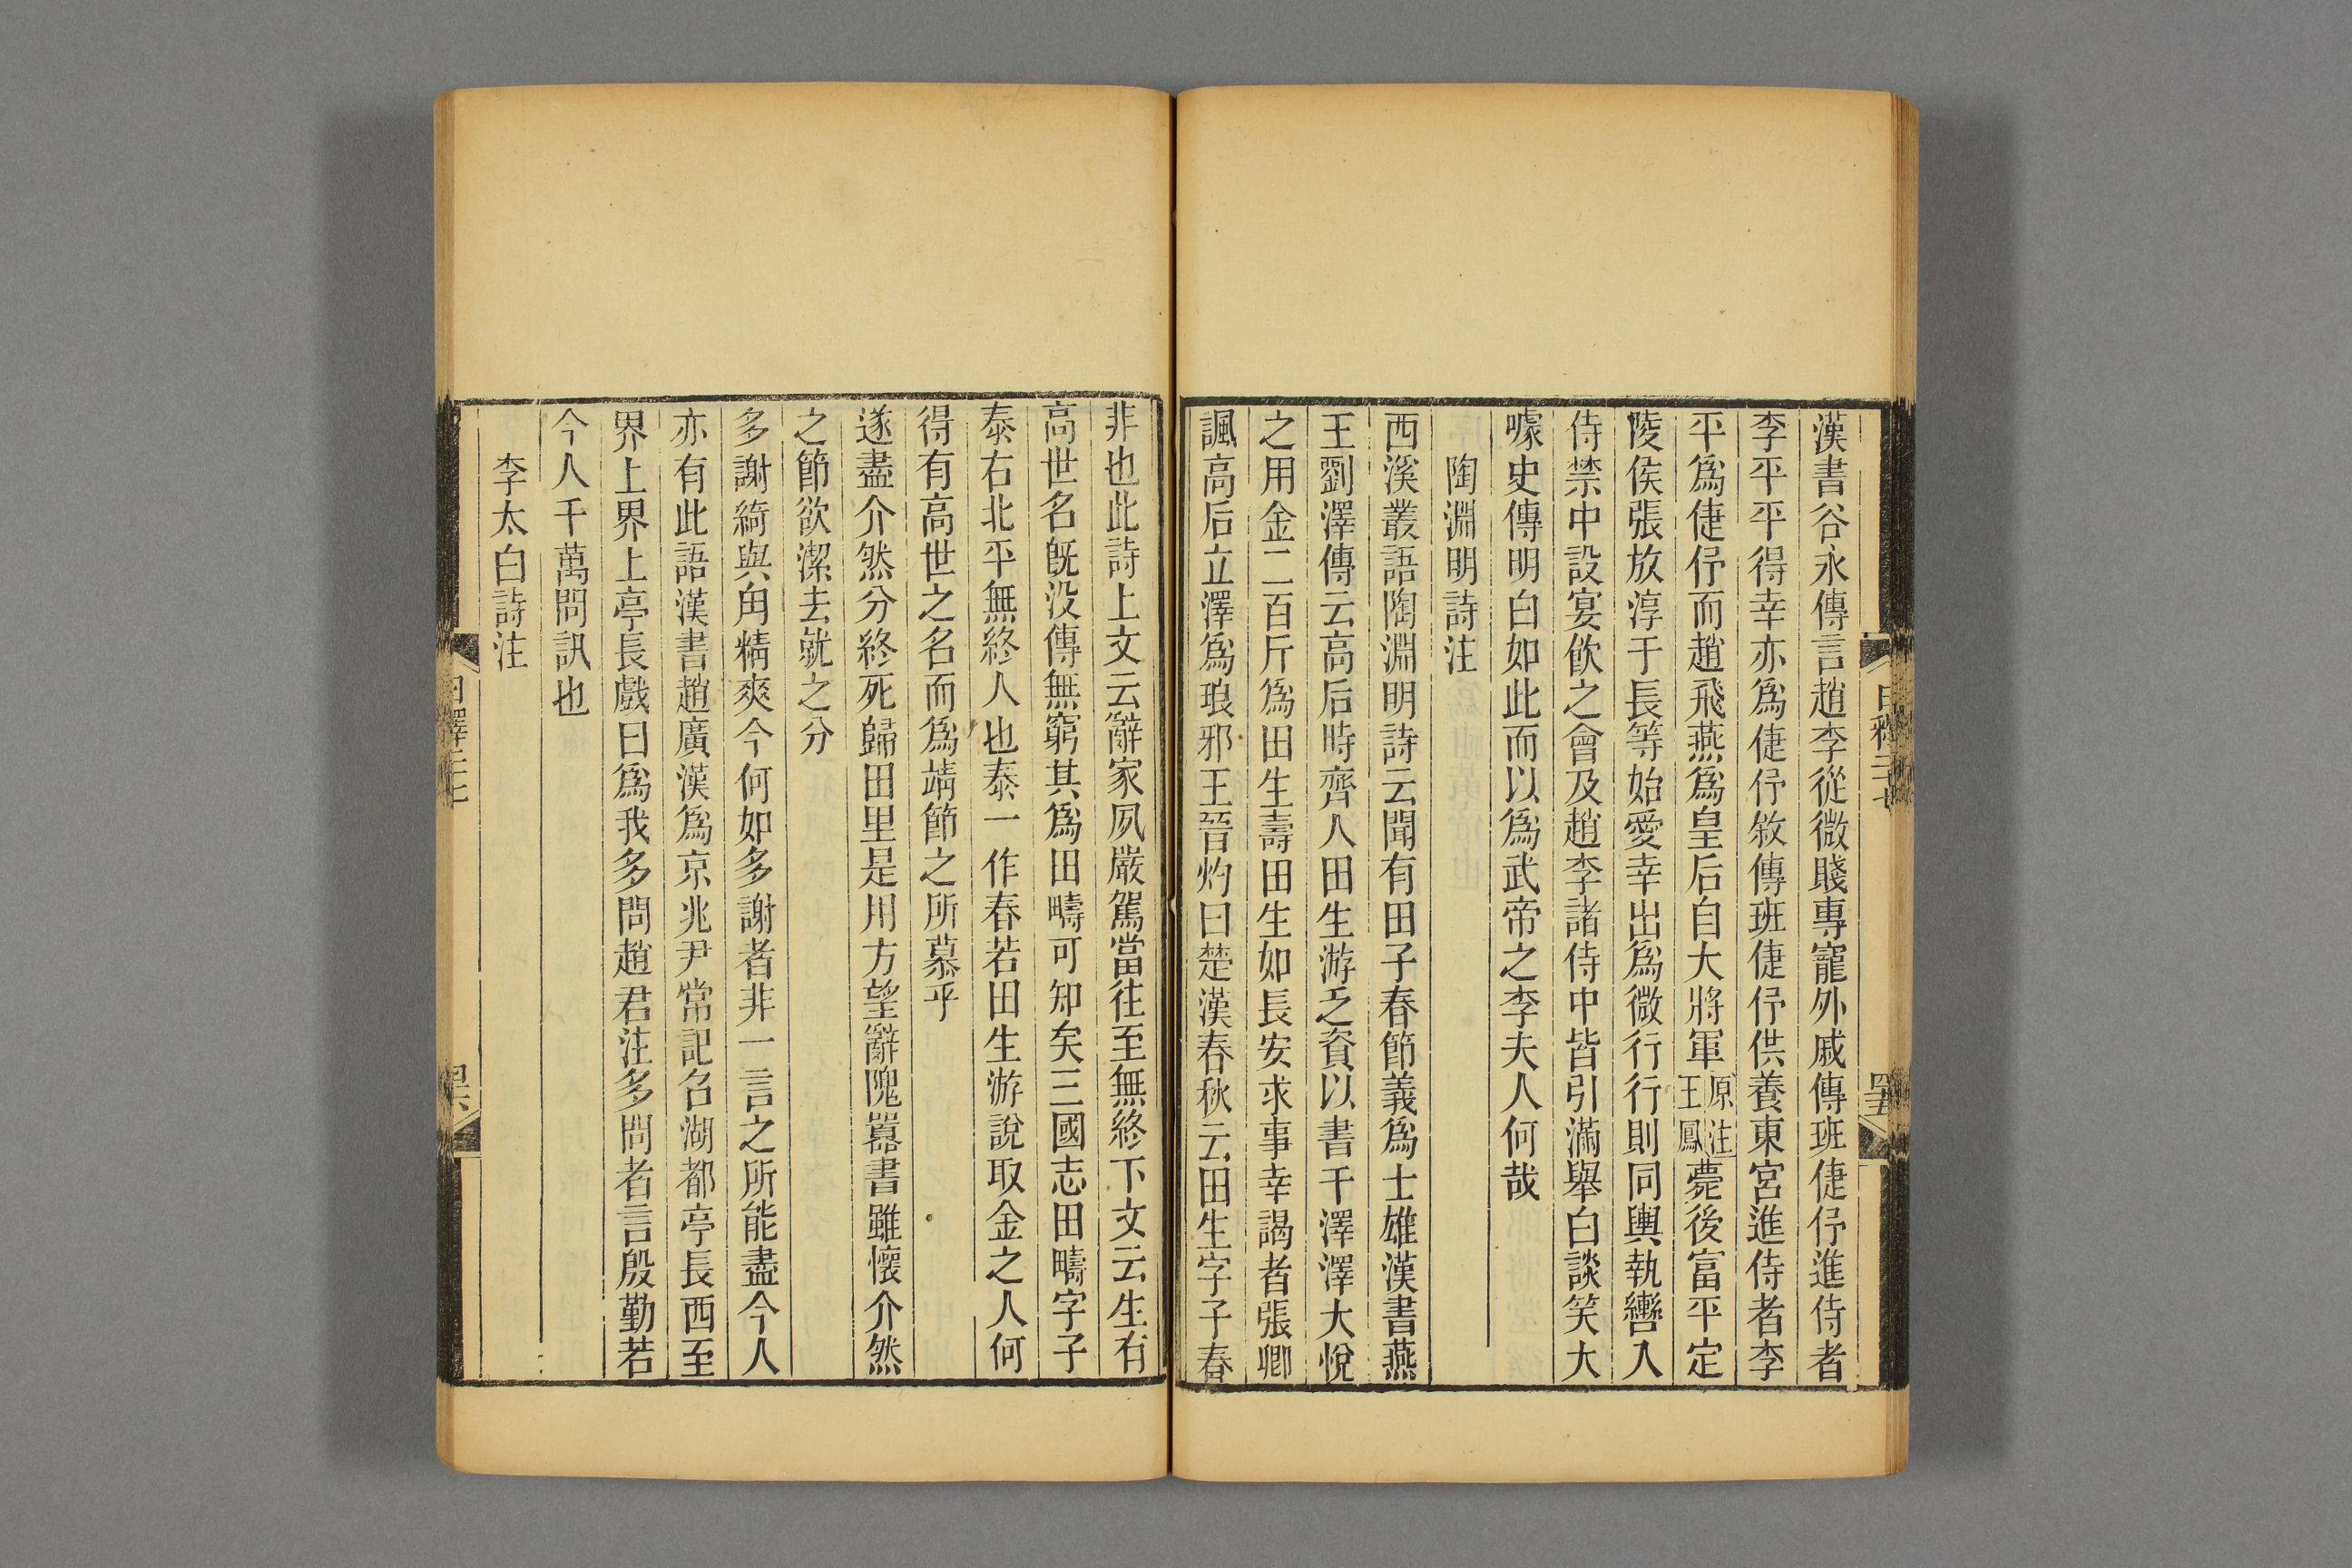 漢書谷永傳言趙李從微賤專寵外戚傳班倢伃進侍者
李平平得幸亦爲倢伃敘傳班倢伃供養東宮進侍者李
平爲倢伃而趙飛燕爲皇后自大將軍原注王鳳薨後富平定
陵侯張放淳于長等始愛幸出爲微行行則同輿執轡入
侍禁中設宴飲之會及趙李諸侍中皆引滿舉白談笑大
噱史傳明白如此而以爲武帝之李夫人何哉
陶淵明詩注
西溪叢語陶淵明詩云聞有田子春節義爲士雄漢書燕
王劉澤傳云高后時齊人田生游乏資以書干澤澤大悅
之用金二百斤爲田生壽田生如長安求事幸謁者張卿
諷高后立澤爲琅邪王晉灼曰楚漢春秋云田生字子春
非也此詩上文云辭家夙嚴駕當往至無終下文云生有
高世名旣没傳無窮其爲田疇可知矣三國志田疇字子
泰右北平無終人也泰一作春若田生游說取金之人何
得有高世之名而爲靖節之所慕乎
遂盡介然分終死歸田里是用方望辭隗囂書雖懷介然
之節欲潔去就之分
多謝綺與甪精爽今何如多謝者非一言之所能盡今人
亦有此語漢書趙廣漢爲京兆尹常記召湖都亭長西至
界上界上亭長戲曰爲我多問趙君注多問者言殷勤若
今人千萬問訊也
李太白詩注